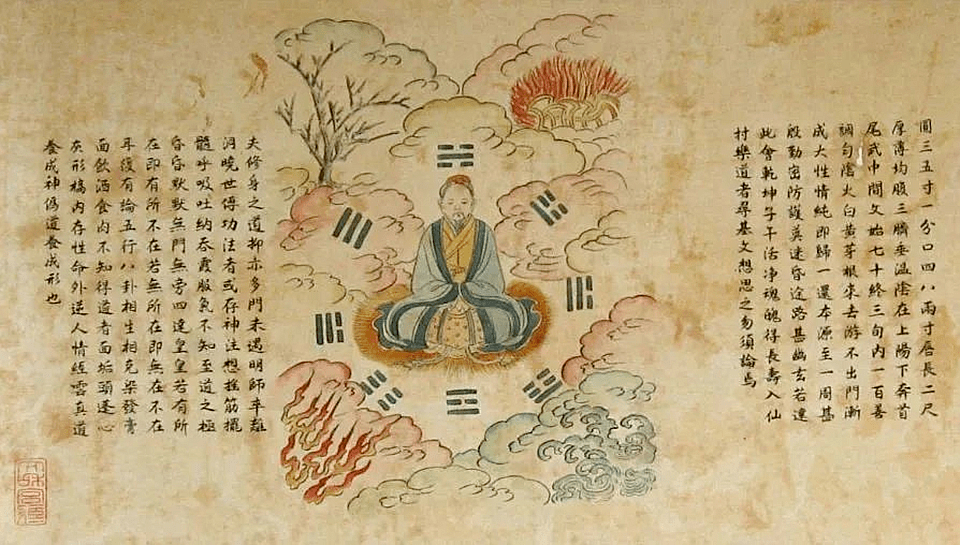 圓三五寸一分口四八兩寸唇長二尺
厚薄均腹三臍垂溫陰在上陽下奔首
尾武中間文始七十終三旬內一百善
調勻陰火白黃芽根來去游不出門漸
成大性情純即歸一還本源至一周甚
殷勤密防護莫迷昏途路甚幽玄若達
此會乾坤子午活净魂魄得長壽入仙
村樂道者尋基文想思之勿須論焉
夫修身之道抑亦多門未遇明師卒難
洞曉世傳功法者或存神注想拴筋擺
髓呼吸吐納吞霞服氣不知至道之極
昏昏默默無門無旁四達皇皇若有所
在即有所不在若無所在即無在不在
耳復有論五行八卦相生相克染發膏
面飲酒食肉不知得道者面垢頭蓬心
灰形槁內存性命外逆人情經雲真道
養成神偽道養成形也